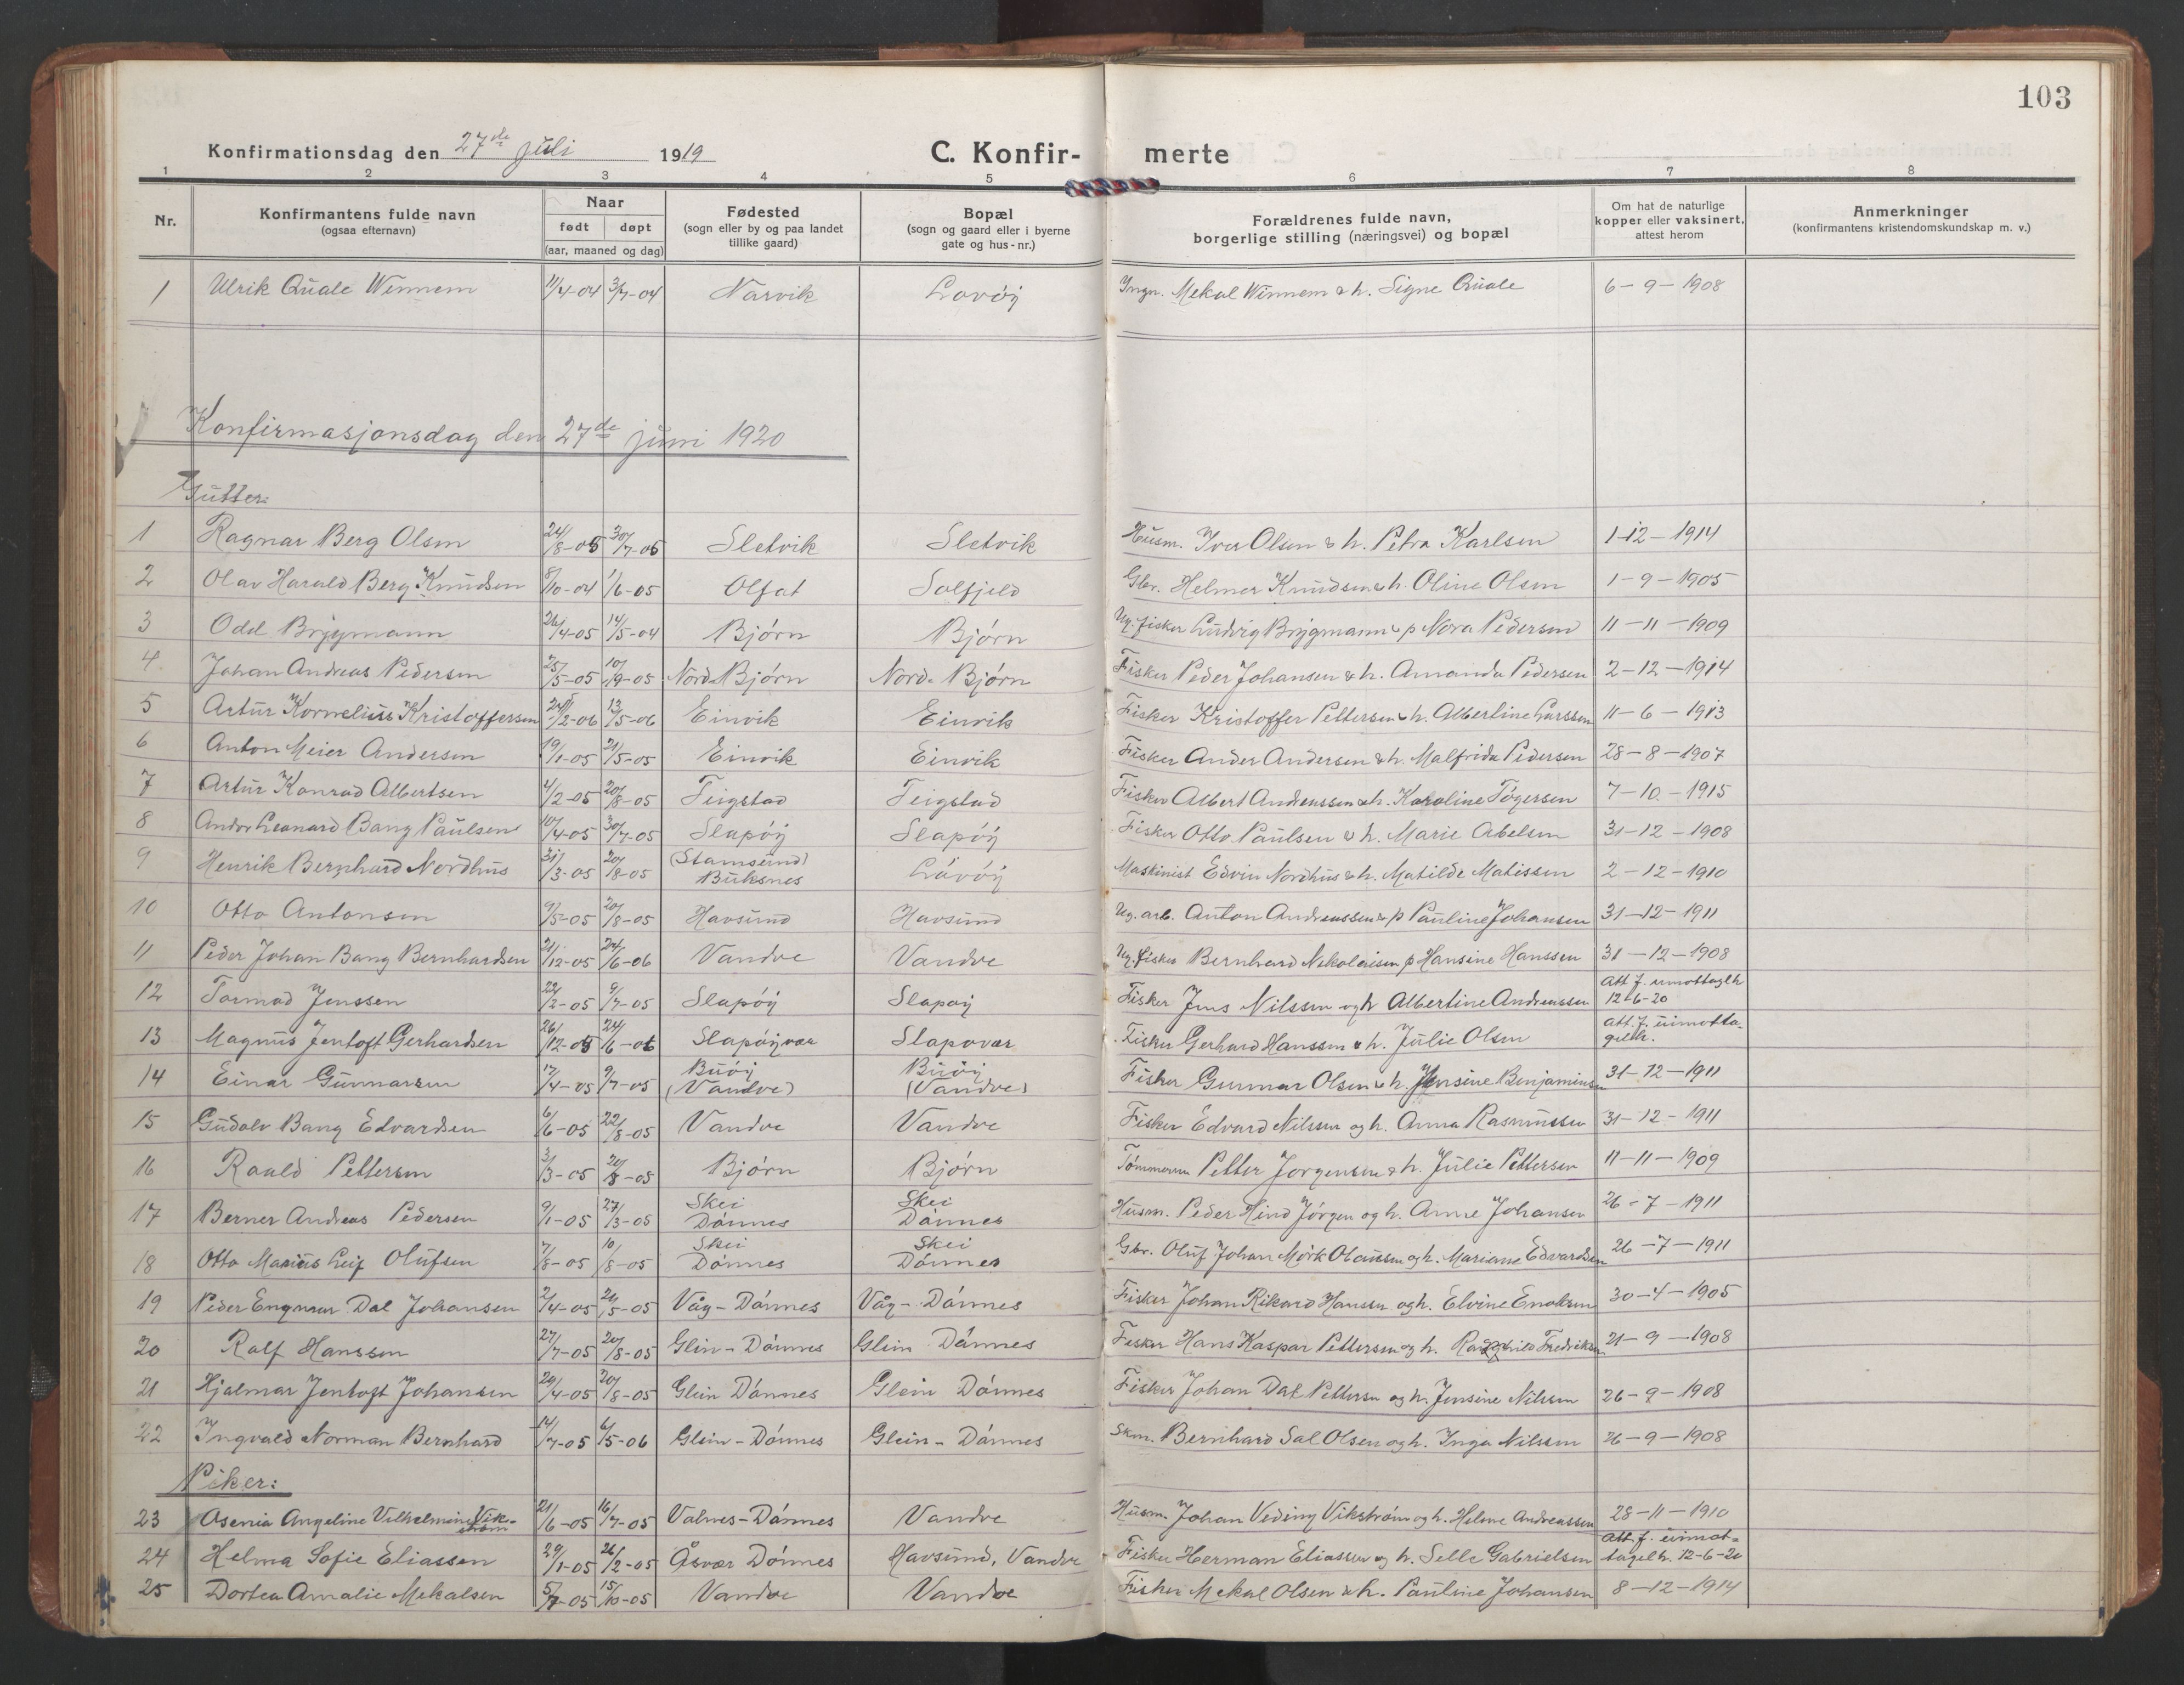 103
Konfirmationsdag den 27de juli 1919 C. Konfir- merte
1 2 3 4 5 6 7 8
Nr. Konfirmantens fulde navn (ogsaa efternavn) Naar født døpt (aar, maaned og dag) Fødested (sogn eller by og paa landet tillike gaard) Bopæl (sogn og gaard eller i byerne gate og hus-nr.) Forældrenes fulde navn, borgerlige stilling (næringsvei) og bopæl Om hat de naturlige kopper eller vaksinert, attest herom Anmerkninger (konfirmantens kristendomskundskap m. v.)
1 Ulrik Quale Winnem 11/4-04 3/7-04 Narvik Lovöy Ingn. Mekal Winnem & h. Signe Quale 6-9-1908
Konfirmasjonsdag den 27de juni 1920
Gutter:
1 Ragnar Berg Olsen 24/8-05 30/7-05 Sletvik Sletvik Husm. Iver Olsen & h. Petra Karlsen 1-12-1914
2 Olav Harald Berg Knudsen 8/10-04 1/6-05 Olfat Solfjeld Gbr. Helmer Knudsen & h. Oline Olsen 1-9-1905
3 Odd Brygmann 26/4-05 14/5-04 Bjørn Bjørn Ug. fisker Ludvig Brygmann & p Nora Pedersen 11-11-1909
4 Johan Andreas Pedersen 25/5-05 10/9-05 Nord-Bjørn Nord-Bjørn Fisker Peder Johansen & h. Amanda Pedersen 2-12-1914
5 Artur Kornelius Kristoffersen /2-06 13/5-06 Einvik Einvik Fisker Kristoffer Pettersen & h. Albertine Larssen 11-6-1913
6 Anton Meier Andersen 19/1-05 21/5-05 Einvik Einvik Fisker Ander Andersen & h. Malfrida Pedersen 28-8-1907
7 Artur Konrad Albertsen 4/2-05 20/8-05 Teigstad Teigstad Fisker Albert Andreassen & h. Karoline Tögersen 7-10-1915
8 Andor Leonard Bang Paulsen 10/4-05 30/7-05 Slapöy Slapöy Fisker Otto Paulsen & h. Marie Abelsen 31-12-1908
9 Henrik Bernhard Nordhus 31/3-05 20/8-05 (Stamsund) Buksnes Lövöy Maskinist Edvin Nordhus & h. Matilde Matissen 2-12-1910
10 Otto Antonsen 9/5-05 20/8-05 Havsund Havsund Ug. arb. Anton Andreassen & p Pauline Johansen 31-12-1911
11 Peder Johan Bang Bernhardsen 21/12-05 24/6-06 Vandve Vandve Ug. fisker Bernhard Nekolaisen p Hansine Hanssen 31-12-1908
12 Tormod Jenssen 22/2-05 9/7-05 Slapöy Slapöy Fisker Jens Nilssen og h Albertine Andreassen att f. umottaglh 12-6-20
13 Magnus Jentoft Gerhardsen 26/12-05 24/6-06 Slapöyvær Slapovær Fisker Gerhard Hanssen & h. Julie Olsen att. f. uimottagelh.
14 Einar Gunnarsen 17/4-05 9/7-05 Buöy (Vandve) Buöy (Vandve) Fisker Gunnar Olsen & h. Jensine Benjaminsen 31-12-1911
15 Gudolv Bang Edvardsen 6/6-05 22/8-05 Vandve Vandve Fisker Edvard Nilssen og h. Anna Rasmussen 31-12-1911
16 Roald Pettersen 3/3-05 20/8-05 Bjørn Bjørn Tömmerm Petter Jorgensen & h. Julie Pettersen 11-11-1909
17 Berner Andreas Pedersen 9/1-05 27/3-05 Skei Dönnes Skei Dönnes Husm. Peder Hind Jörgen og h. Anne Johansen 26-7-1911
18 Otto Marius Leif Olufsen 7/8-05 10/8-05 Skei Dönnes Skei Dönnes Gbr. Oluf Johan Mörk Olaussen og h. Mariane Edvardsen 26-7-1911
19 Peder Engnaur Dal Johansen 2/4-05 21/5-05 Våg-Dönnes Våg-Dönnes Fisker Johan Rikard Hanssen og h. Elvine Enoksen 30-4-1905
20 Ralf Hanssen 27/7-05 20/8-05 Glein-Dönnes Glein Dönnes Fisker Hans Kaspar Pettersen og h. Ragnhild Fredriksen 21-9-1908
21 Hjalmar Jentoft Johansen 29/4-05 20/8-05 Glein Dönnes Glein Dönnes Fisker Johan Dal Pettersen og h. Jensine Nilssen 26-9-1908
22 Ingvald Norman Bernhard 14/7-05 6/5-06 Glein-Dönnes Glein-Dönnes Skm. Bernhard Sal Olsen og h. Inga Nilssen 26-9-1908
Piker:
23 Osenia Angeline Vilhelmine Vikström 21/6-05 16/7-05 Valnes-Dönnes Vandve Husm. Johan Veding Vikström og h. Helene Andreassen 28-11-1910
24 Helma Sofie Eliassen 29/1-05 26/2-05 Åsvær Dönnes Havsund, Vandve Fisker Herman Eliassen og h. Selle Gabrielsen att. f. uimottagelh. 12-6-20
25 Dortea Amalie Mekalsen 5/7-05 15/10-05 Vandve Vandve Fisker Mekal Olsen & h. Pauline Johansen 8-12-1914